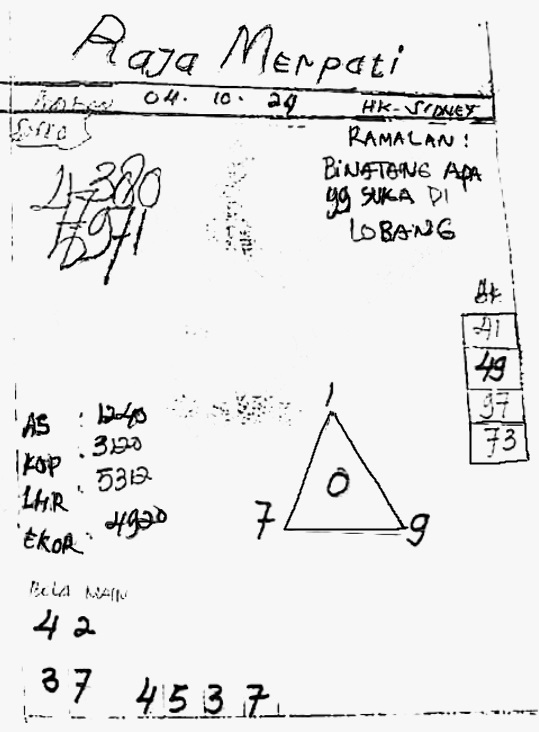 Raja Merpati
04. 10. 24 HK-SIDNEY
RAMALAN:
BINATANG APA
yg SUKA DI
LOBANG
AK
41
49
97
73
AS : 1240
KOP : 3120
LHR 5312
EKOR: 4920
1
0
7 9
BOLA MAIN
4 2
3 7
4 5 3 7